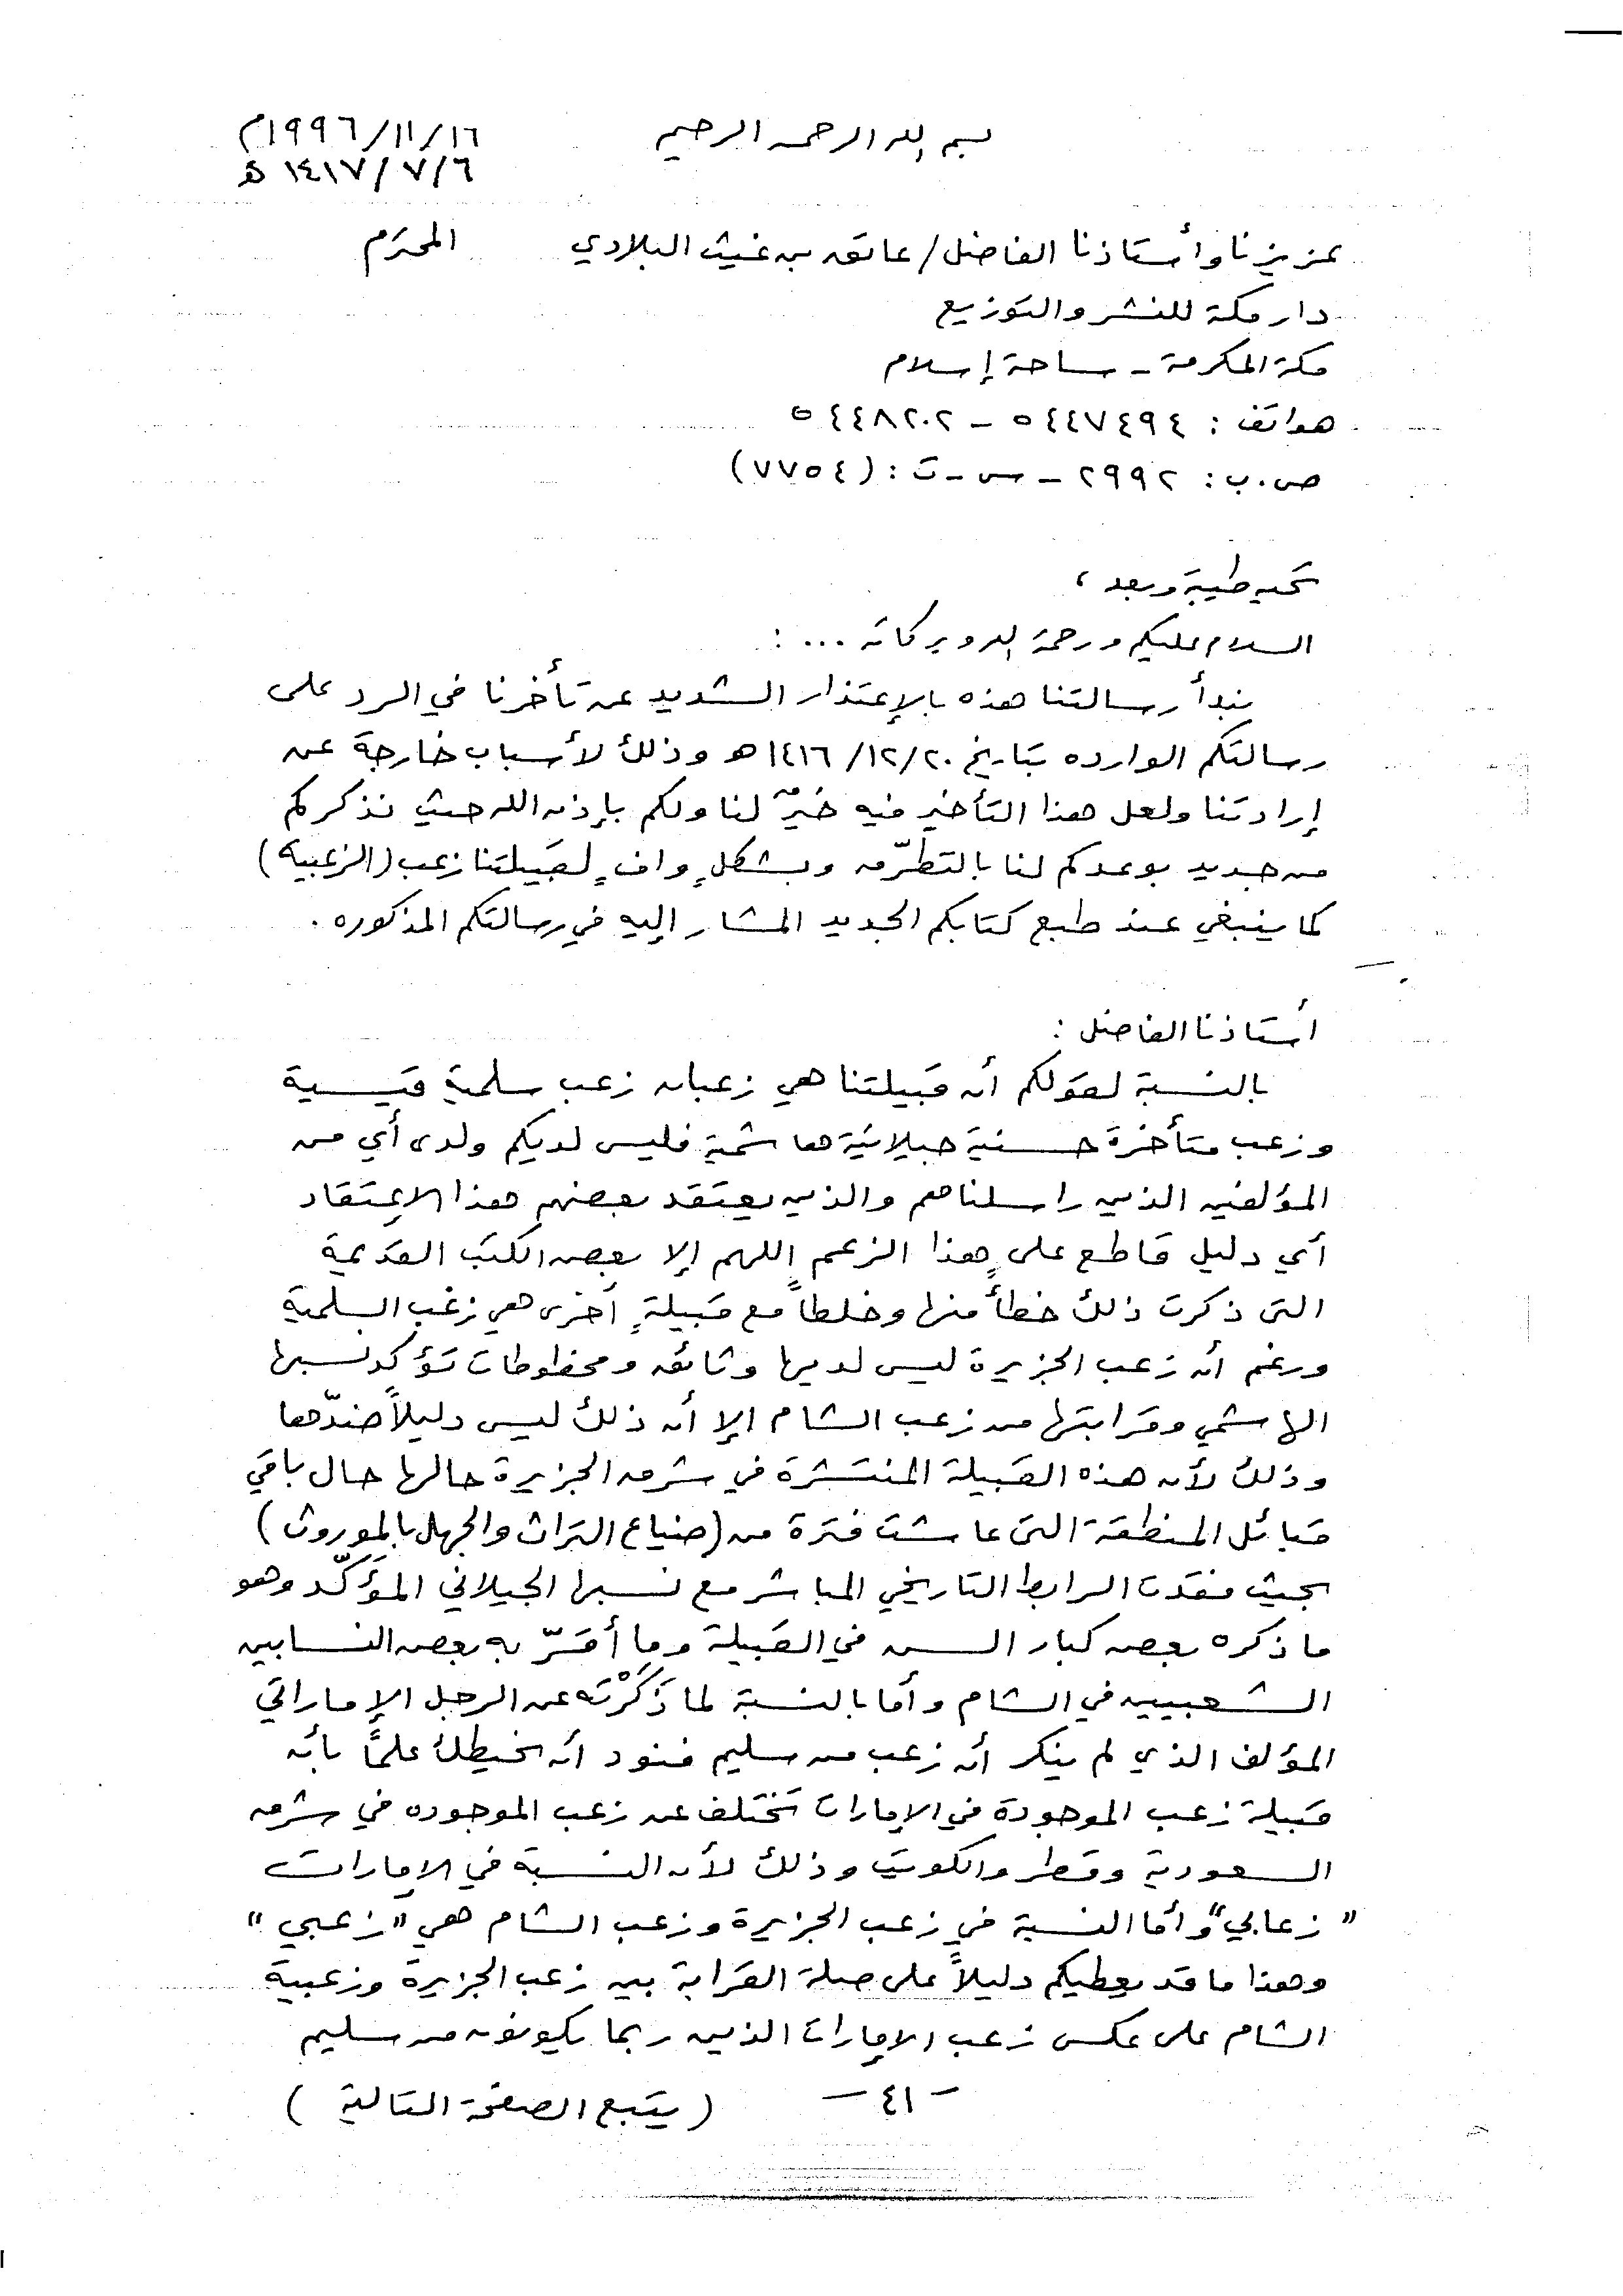 بسم الله الرحمن الرحيم
١٩٩٦/١١/١٦م
١٤١٧/٧/٦ هـ
عزيزنا وأستاذنا الفاضل/ عاتق بن غيث البلادي المحترم
دار مكة للنشر والتوزيع
مكة المكرمة - ساحة إسلام
هواتف : ٥٤٤٧٤٩٤ - ٥٤٤٨٢٠٢
ص.ب : ٢٩٩٢ - س - ت : (٧٧٥٤)
تحيه طيبة وبعد ،
السلام عليكم ورحمة الله وبركاته ... :
نبدأ رسالتنا هذه بالإعتذار الشديد عن تأخرنا في الرد على
رسالتكم الوارده بتاريخ ١٤١٦/١٢/٢٠ هـ وذلك لأسباب خارجة عن
إرادتنا ولعل هذا التأخير فيه خيرٌ لنا ولكم بإذن الله حيث نذكركم
من جديد بوعدكم لنا بالتطرّق وبشكلٍ وافٍ لقبيلتنا زعب (الزعبية)
كما ينبغي عند طبع كتابكم الجديد المشار إليه في رسالتكم المذكوره .
أستاذنا الفاضل :
بالنسبة لقولكم أن قبيلتنا هي زعبان زعب سلمية قيسية
وزعب متأخرة حسنية جيلانية هاشمية فليس لديكم ولدى أي من
المؤلفين الذين راسلناهم والذين يعتقد بعضهم هذا الإعتقاد
أي دليل قاطع على هذا الزعم اللهم إلا بعض الكتب القديمة
التى ذكرت ذلك خطأً منها وخلطاً مع قبيلةٍ أخرى هي زغب السلمية
ورغم أن زعب الجزيرة ليس لديها وثائق ومخطوطات تؤكد نسبها
الهاشمي وقرابتها من زعب الشام إلا أن ذلك ليس دليلاً ضدّها
وذلك لأن هذه القبيلة المنتشرة في شرق الجزيرة حالها حال باقي
قبائل المنطقة التى عاشت فترة من (ضياع التراث والجهل بالموروث)
بحيث فقدت الرابط التاريخي المباشر مع نسبها الجيلاني المؤكَّد وهو
ما ذكره بعض كبار السن في القبيلة وما أقرّ به بعض النسابين
الشعبيين في الشام وأما بالنسبة لما ذَكَرْتَه عن الرجل الإماراتي
المؤلف الذي لم ينكر أن زعب من سليم فنود أن نحيطك علماً بأن
قبيلة زعب الموجودة في الإمارات تختلف عن زعب الموجوده في شرق
السعودية وقطر والكويت وذلك لأن النسبة في الإمارات
"زعابي" وأما النسبة في زعب الجزيرة وزعب الشام هي "زعبي"
وهذا ما قد يعطيكم دليلاً على صلة القرابة بين زعب الجزيرة وزعبية
الشام على عكس زعب الإمارات الذين ربما يكونون من سليم
- ٤١ - (يتبع الصفحة التالية)